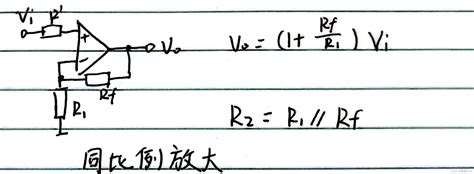 Vi R' + - Vo Rf R1
Vo = (1 + Rf/R1) Vi
R2 = R1 // Rf
同比例放大